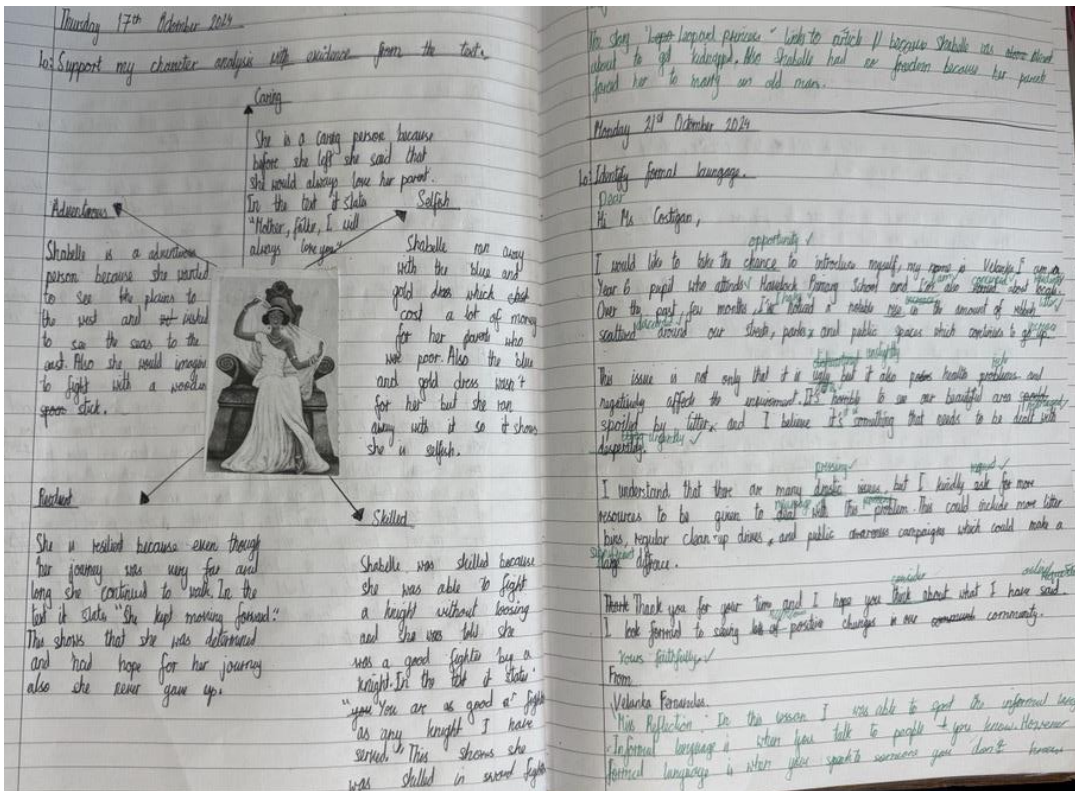 Thursday 17th October 2024
Lo: Support my character analysis with evidence from the text.
Caring
She is a caring person because
before she left she said that
she would always love her parent.
In the text it states
"Mother, father, I will
always love you"
Adventurous
Shabelle is a adventurous
person because she wanted
to see the plains to
the west and wished
to see the seas to the
east. Also she would imagine
to fight with a wooden
stick.
Selfish
Shabelle ran away
with the blue and
gold dress which
cost a lot of money
for her parents who
was poor. Also the blue
and gold dress wasn't
for her but she ran
away with it so it shows
she is selfish.
Resilient
She is resilient because even though
her journey was very far and
long she continued to walk. In the
text it states "She kept moving forward."
This shows that she was determined
and had hope for her journey
also she never gave up.
Skilled
Shabelle was skilled because
she was able to fight
a knight without loosing
and she was told she
was a good fighter by a
knight. In the text it states
"you You are as good a fighter
as any knight I have
served." This shows she
was skilled in sword
The story Leopard princess" links to article 11 because Shabelle was
about to get kidnapped. Also Shabelle had no freedom because her parents
forced her to marry an old man.
Monday 21st October 2024
Lo: Identify formal
Dear
Hi Ms Costigan,
opportunity
I would like to take the chance to introduce myself, my name is Velanka I am a
Year 6 pupil who attends Havelock Primary School and I'm also about
Over the past few months I've noticed a notable rise in the amount of
scattered around our streets, parks, and public spaces which continues to
unsightly
This issue is not only that it is ugly but it also health problems and
negatively affects the enviroment. It's horrible to see our beautiful area
spoiled by litter, and I believe it's something that needs to be dealt with
urgently
desperately.
pressing request
I understand that there are many drastic issues, but I kindly ask for more
resources to be given to deal with this problem. This could include more litter
bins, regular clean-up drives, and public awareness campaigns which could make a
significant
large diffrence.
consider
Thank Thank you for your time and I hope you think about what I have said.
I look forward to seeing positive changes in our community.
Yours faithfully
From
Velanka Fernandes.
Reflection: In this lesson I was able to spot the informal
Informal language is when you talk to people you know. However
formal language is when you speak to someone you don't